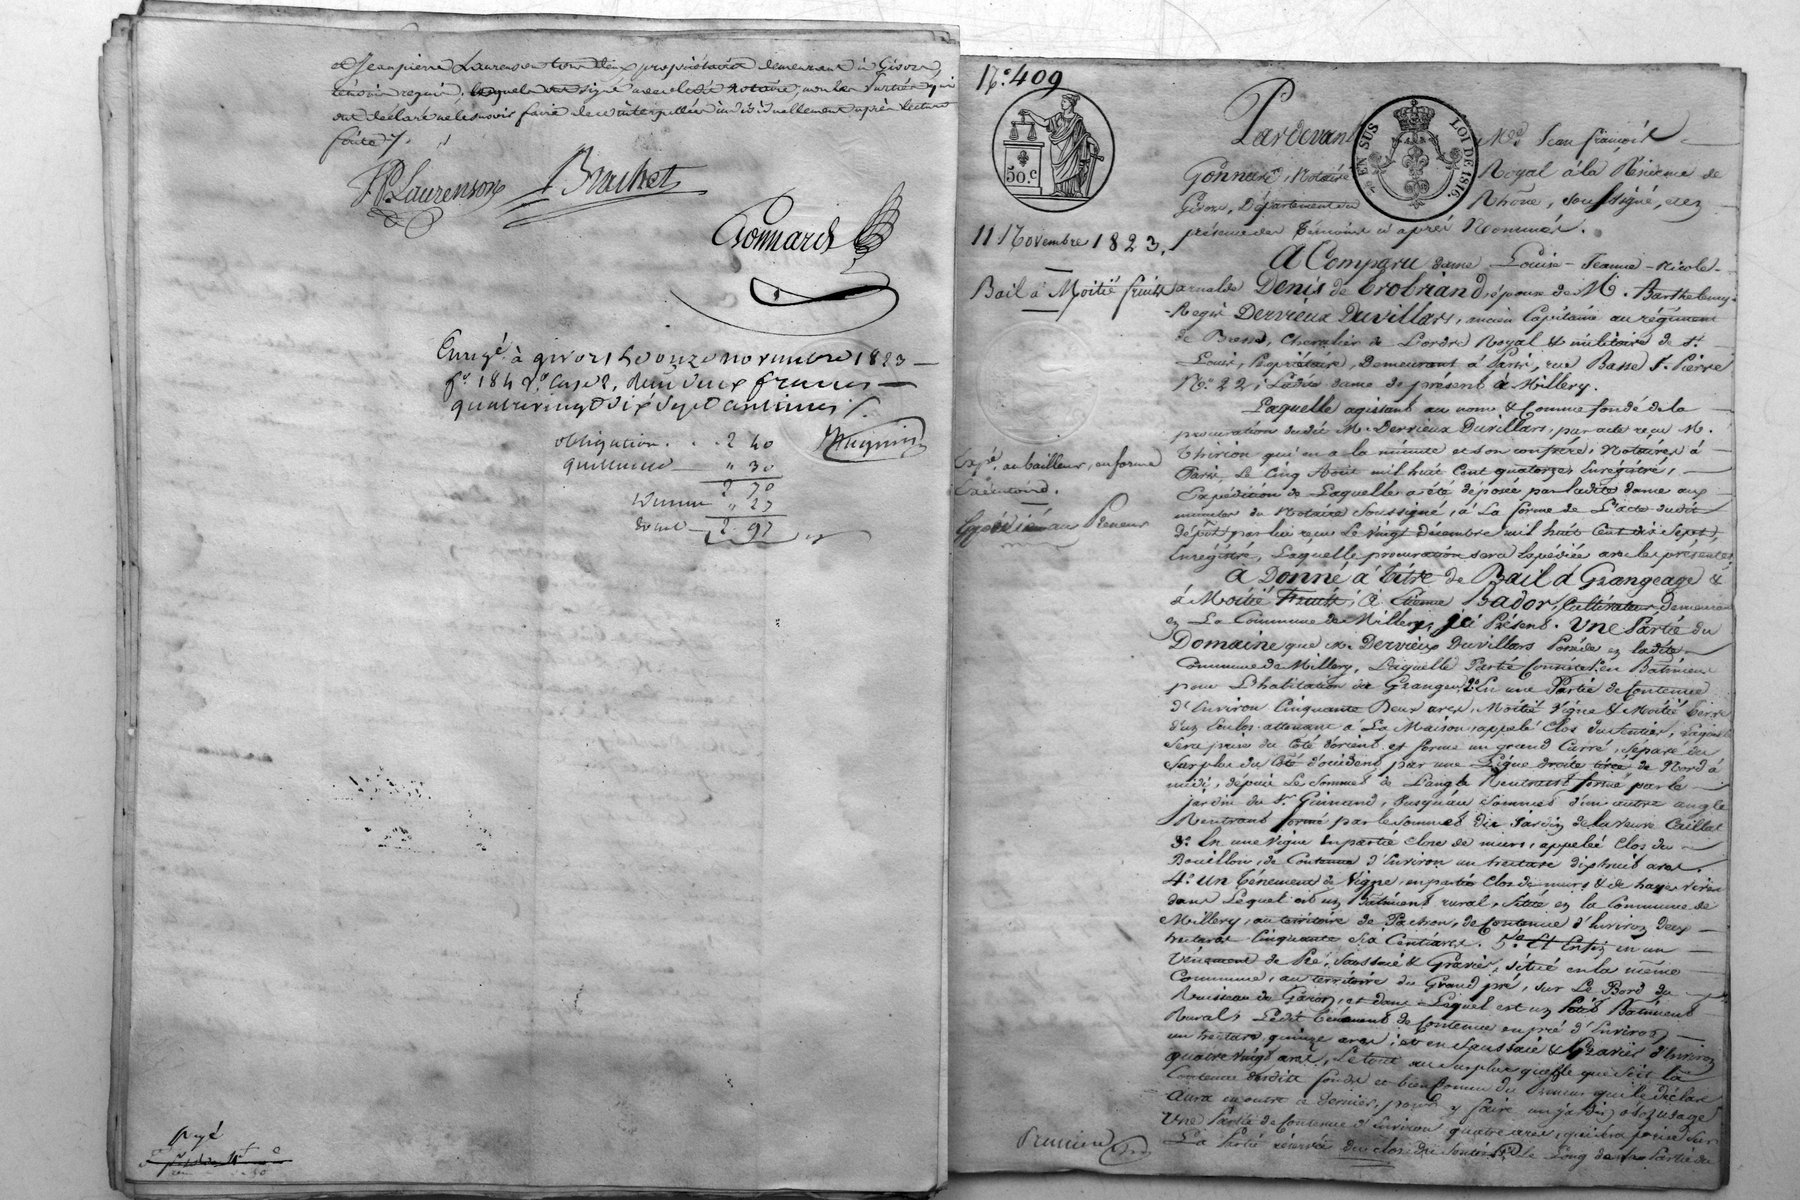 et Jeanpierre Laurenson tous deux propriétaires demeurant à Givors,
témoins requis, lesquels ont signé avec le dit notaire, non les parties qui
ont déclaré ne le savoir faire de ce interpellées individuellement après lecture
faite /.
JP Laurenson Brachet
Gonnard
Enregé à givors le onze novembre 1823
fo 184 Vo Case 2, Reçu deux francs
quatrevingt dix sept centimes /.
obligation . . 2 40
quittance " 30
2 70
Dixme " 27
Total 2 97
payé
No 409
50.c
EN SUS LOI DE 1816
11 Novembre 1823.
Bail à Moitié fruits
Expé. au bailleur, en forme
Exécutoire.
Expédié au Preneur
Pardevant Me Jean françois
Gonnard, Notaire Royal à la Résidence de
Givors, Département du Rhône, soussigné, et en
présence des témoins ci après Nommés.
A Comparu dame Louise-Jeanne-Nicole-
arnalde Denis de Trobriand, épouse de M. Barthelemy-
Regis Dervieux Duvillars, ancien Capitaine au régiment
de Bresse, Chevalier de l'ordre Royal & militaire de St
Louis, Propriétaire, Demeurant à Paris, rue Basse St Pierre
No 22, Ladite dame de présent à Millery.
Laquelle agissant au nom & Comme fondé de la
procuration dudit M. Dervieux Duvillars, par acte reçu M.
Thirion qui en a la minute et son confrère, Notaires à
Paris, Le Cinq Août mil huit Cent quatorze, Enregistré,
Expédition de Laquelle a été déposée par ladite dame aux
minutes du Notaire soussigné, à La forme de L'acte dudit
dépôt par lui reçu Le vingt Décembre mil huit Cent dix Sept,
Enregistré, Laquelle procuration sera Expédiée avec les présentes
A Donné à titre de Bail à Grangeage &
à Moitié Fruits, à Etienne Bador, Cultivateur, Demeurant
en La Commune de Millery, ici Présent. Une Partie du
Domaine que M. Dervieux Duvillars Possède en ladite
Commune de Millery, Laquelle Partie Consiste en Bâtiment
pour L'habitation du Granger, 2o En une Partie de Contenue
d'Environ Cinquante Deux ares, Moitié Vigne & Moitié terre
d'un Enclos attenant à La Maison, appelé Clos du Sentier, Laquelle
Sera prise du Côté d'orient, et forme un grand Carré, séparé du
Surplus du Côté d'occident par une Ligne droite tirée de Nord à
midi, depuis Le Sommet de L'angle Rentrant formé par le
jardin du Sr Guinand, Jusqu'au Sommet d'un autre angle
Rentrant formé par le sommet du Jardin de la veuve Caillat
3o En une Vigne en partie Close de murs, appelée Clos du
Bouillon, de Contenue d'Environ un hectare dix huit ares.
4o Un Ténement de Vigne, en partie Clos de murs & de hayes vives
dans Lequel est un Bâtiment rural, Situé en la Commune de
Millery, au territoire de Pachon, de Contenue d'Environ Deux
hectares Cinquante Six Centiares. 5o Et Enfin en un
Ténement de Pré, Saussaie & Gravier, situé en la même
Commune, au territoire du Grand pré, sur Le Bord du
Ruisseau de Garon, et dans Lequel est un Petit Bâtiment
Rural, Ledit Ténement de Contenue en pré d'Environ
un hectare quinze ares, et en Saussaie & Gravier d'Environ
quatre vingt ares, Le tout au surplus quelle que soit la
Contenue desdits fonds et bien Connu du Preneur qui le déclare
Aura en outre ce Dernier, pour y faire un jardin à son usage
Une Partie de Contenue d'Environ quatre ares, qui sera prise sur
La Partie réservée du clos du Sentier, Le Long de la Partie du
Première